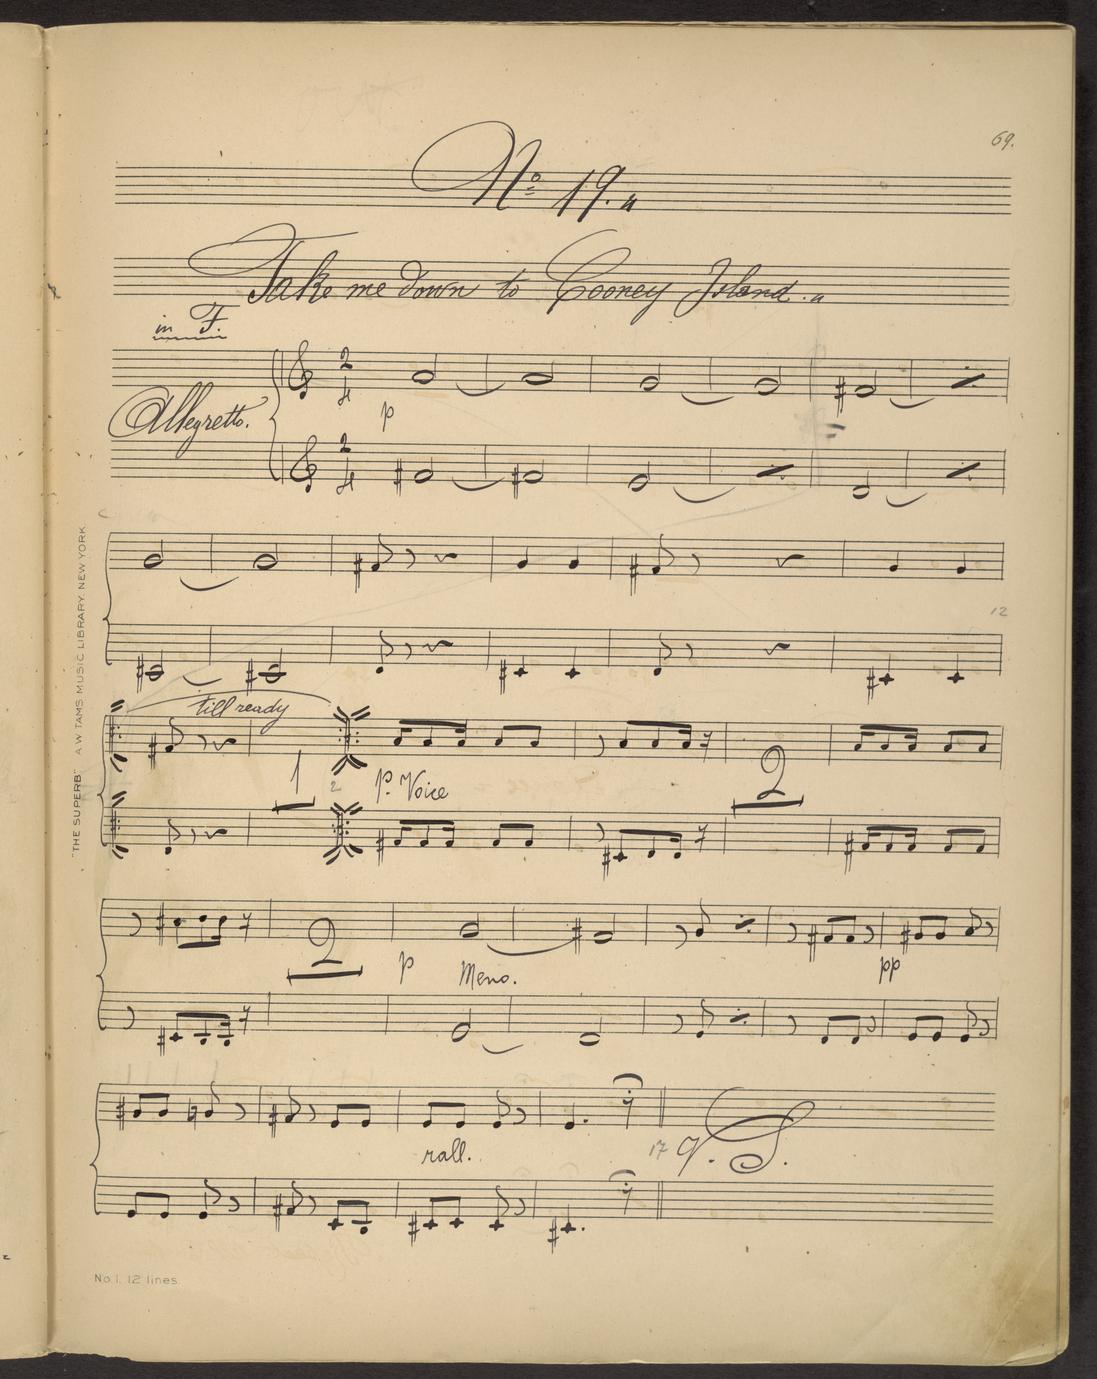 69.
No 19.
Take me down to Cooney Island.
in F.
Allegretto.
2 4
p
2 4
12
till ready
1 2 p. Voice 2
2 p Meno. pp
rall.
17 V. S.
"THE SUPERB" A.W. TAMS MUSIC LIBRARY. NEW YORK
No 1. 12 lines.